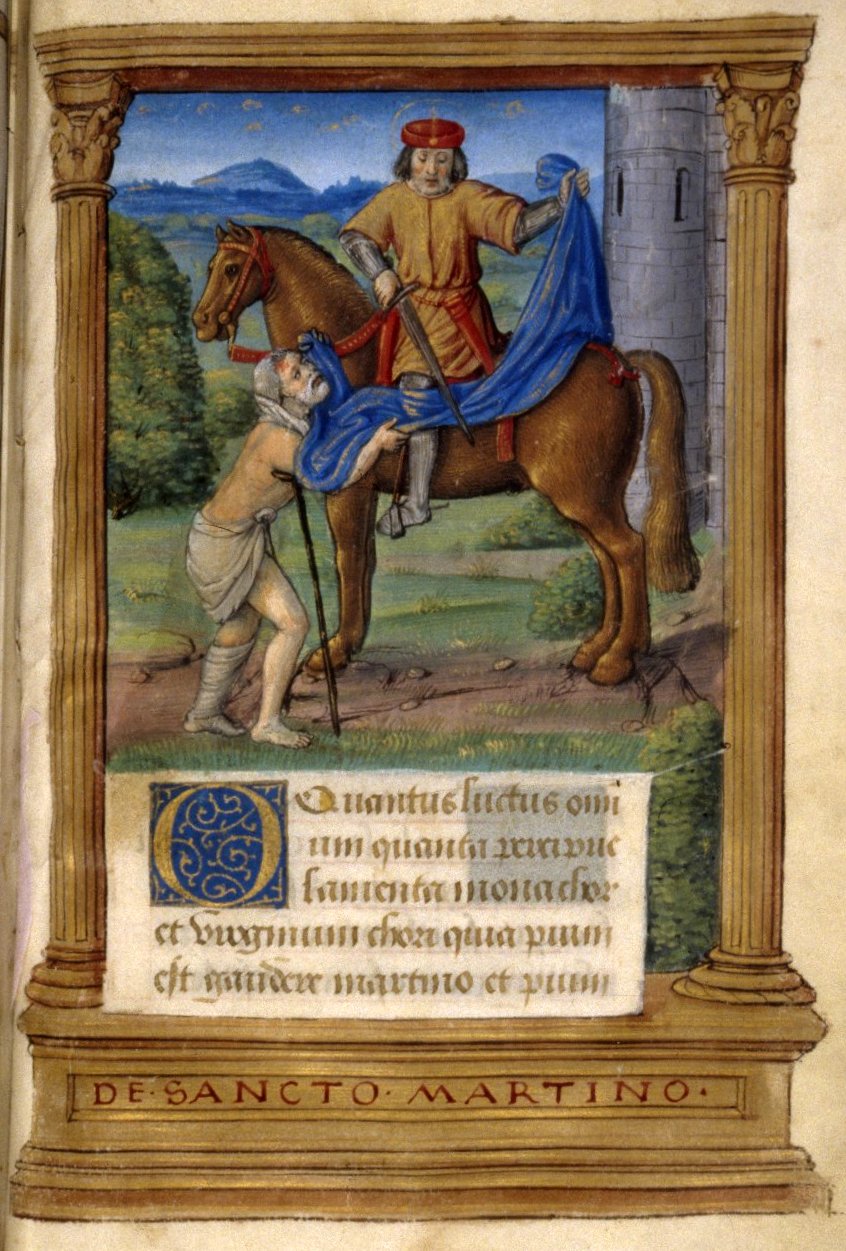 O Quantus luctus omni
um quanta precipue
lamenta monachor
et virginum chori quia pium
est gaudere martino et pium
DE·SANCTO·MARTINO·